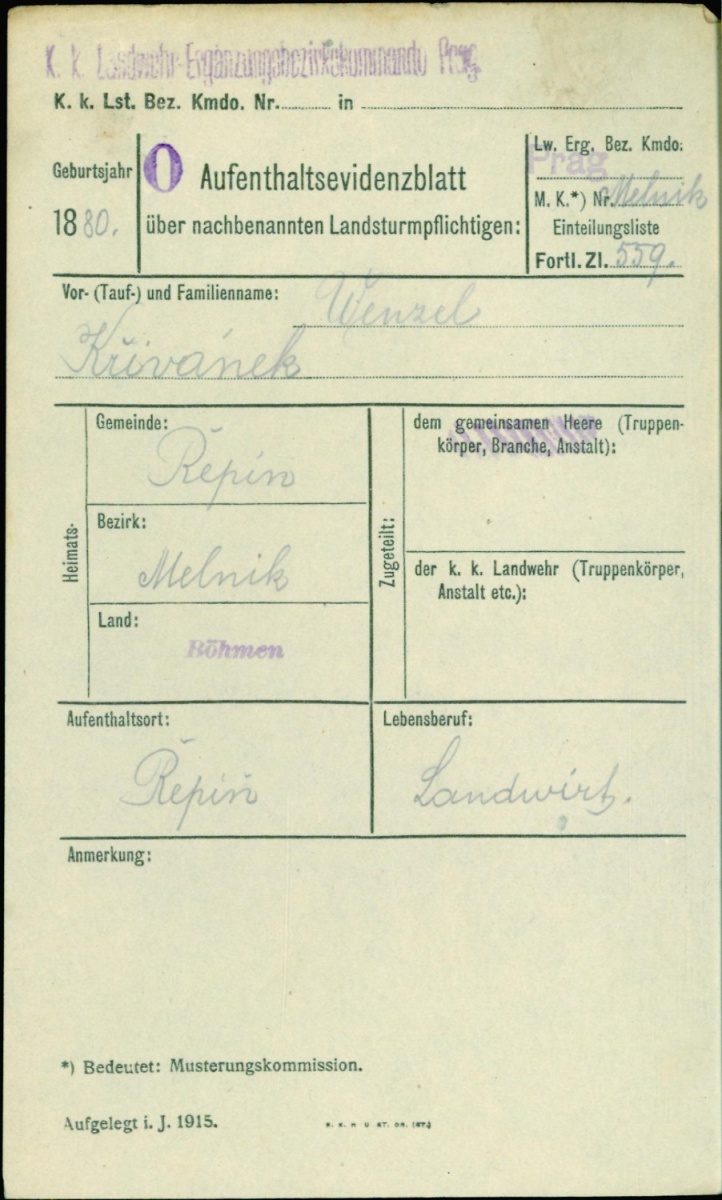 K. k. Landwehr-Ergänzungsbezirkskommando Prag
K. k. Lst. Bez. Kmdo. Nr. in
Geburtsjahr
1880.
O Aufenthaltsevidenzblatt
über nachbenannten Landsturmpflichtigen:
Lw. Erg. Bez. Kmdo.
Prag
M. K.*) Nr. Melnik
Einteilungsliste
Fortl. Zl. 559.
Vor- (Tauf-) und Familienname: Wenzel
Křivánek
Heimats-
Gemeinde:
Řepín
Bezirk:
Melnik
Land:
Böhmen
Zugeteilt:
dem gemeinsamen Heere (Truppen-
körper, Branche, Anstalt):
der k. k. Landwehr (Truppenkörper,
Anstalt etc.):
Aufenthaltsort:
Řepín
Lebensberuf:
Landwirt.
Anmerkung:
*) Bedeutet: Musterungskommission.
Aufgelegt i. J. 1915.